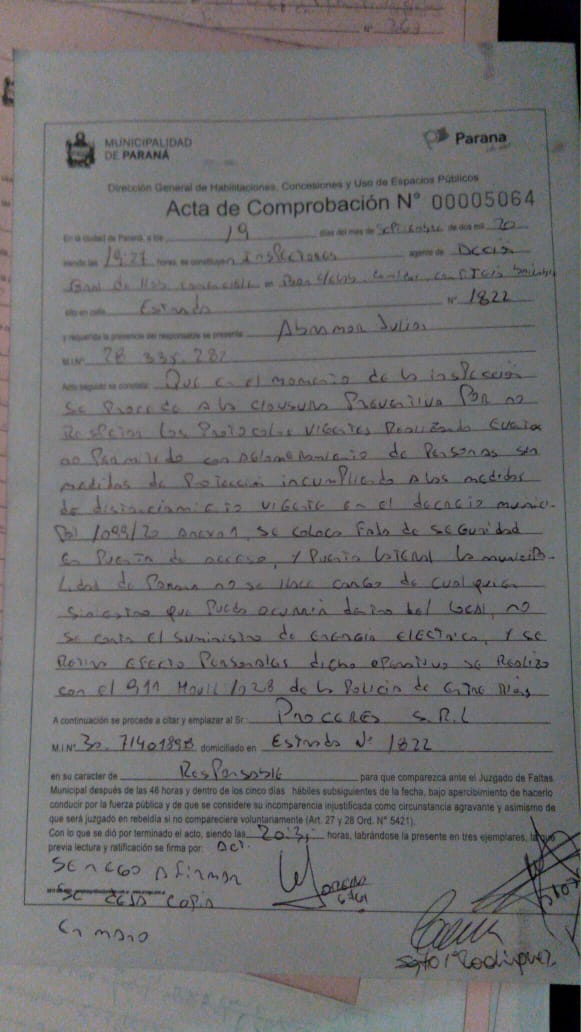 MUNICIPALIDAD
DE PARANÁ
Parana
Dirección General de Habilitaciones, Concesiones y Uso de Espacios Públicos
Acta de Comprobación N° 00005064
En la ciudad de Paraná, a los 19 días del mes de Septiembre de dos mil 20
siendo las 19:27 horas, se constituyen inspectores agente de
sito en calle Estrada N° 1822
y requerida la presencia del responsable se presenta Abramor Julian
M.I.N° 28.335.287
Acto seguido se constata: Que en el momento de la inspección
se procede a la clausura preventiva por no
respetar los protocolos vigentes realizando evento
no permitido con aglomeramiento de personas sin
medidas de protección incumpliendo a las medidas
de distanciamiento vigente en el decreto munici-
pal 1099/20 anexo 1, se coloco faja de seguridad
en puerta de acceso, y puerta lateral la municipa-
lidad de Parana no se hace cargo de cualquier
siniestro que pueda ocurrir dentro del local, no
se corta el suministro de energia electrica, y se
retira efecto personales dicho operativo se realizo
con el 911 movil 1028 de la policia de Entre Rios
A continuación se procede a citar y emplazar al Sr: PROCERES S.R.L
M.I.N° 30.7140189 domiciliado en Estrada N° 1822
en su caracter de Responsable para que comparezca ante el Juzgado de Faltas
Municipal después de las 48 horas y dentro de los cinco días hábiles subsiguientes de la fecha, bajo apercibimiento de hacerlo
conducir por la fuerza pública y de que se considere su incomparencia injustificada como circunstancia agravante y asimismo de
que será juzgado en rebeldía si no compareciere voluntariamente (Art. 27 y 28 Ord. N° 5421).
Con lo que se dió por terminado el acto, siendo las horas, labrándose la presente en tres ejemplares, la que
previa lectura y ratificación se firma por: Act.
Se nego a firmar
se copia
en mano
Sgto 1° Rodriguez